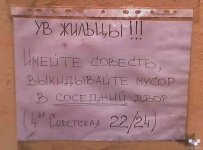 УВ ЖИЛЬЦЫ!!!
ИМЕЙТЕ СОВЕСТЬ,
ВЫКИДЫВАЙТЕ МУСОР
В СОСЕДНИЙ ДВОР
(4ая Советская 22/24)